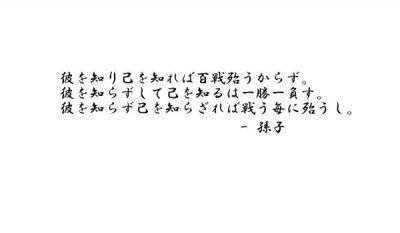 彼を知り己を知れば百戦殆うからず。
彼を知らずして己を知るは一勝一負す。
彼を知らず己を知らざれば戦う毎に殆うし。
– 孫子